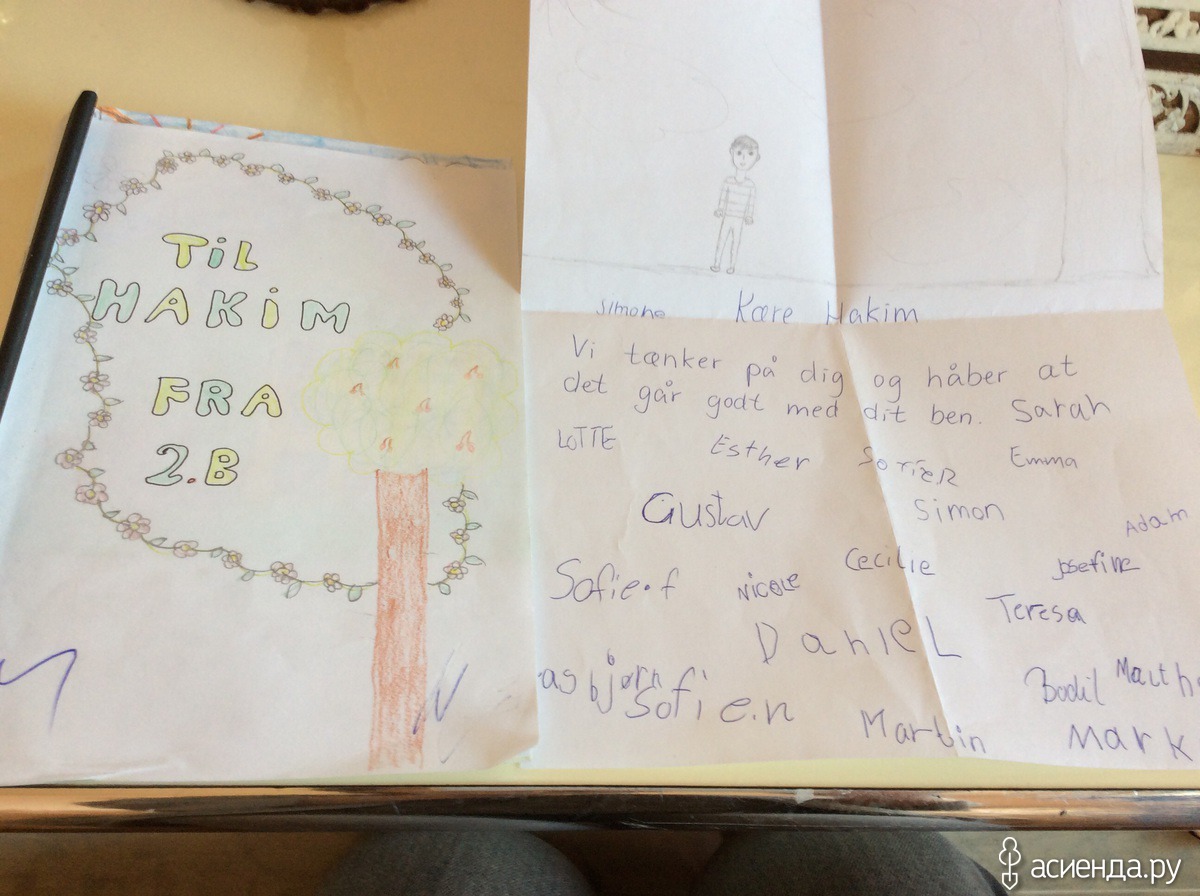 TiL
HAKiM
FRA
2.B
Simone Kære Hakim
Vi tænker på dig og håber at
det går godt med dit ben. Sarah
LOTTE Esther Emma
Gustav Simon
Adam
Sofie.f Nicole Cecilie Josefine
Teresa
DanieL
asbjørn Bodil
Sofie.n Martin Mark
асиенда.ру